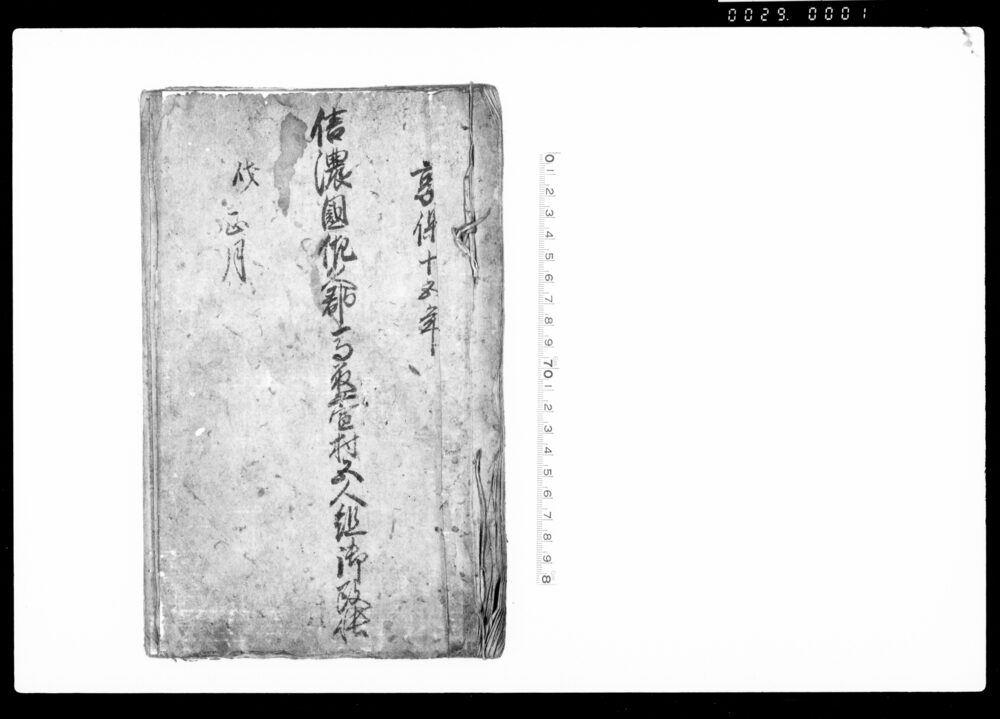 0029. 0001
享保十五年
信濃國佐久郡馬取萱村五人組御改帳
戌
正月
0 1 2 3 4 5 6 7 8 9 70 1 2 3 4 5 6 7 8 9 8